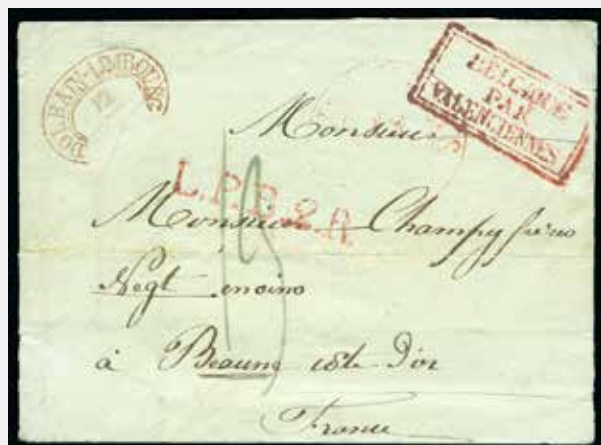 DOLHAIN-LIMBOURG
12
BELGIQUE
PAR
VALENCIENNES
Monsieur
L.P.B.2.R.
Monsieur Champy frères
Negt en vins
à Beaune Côte d'or
France